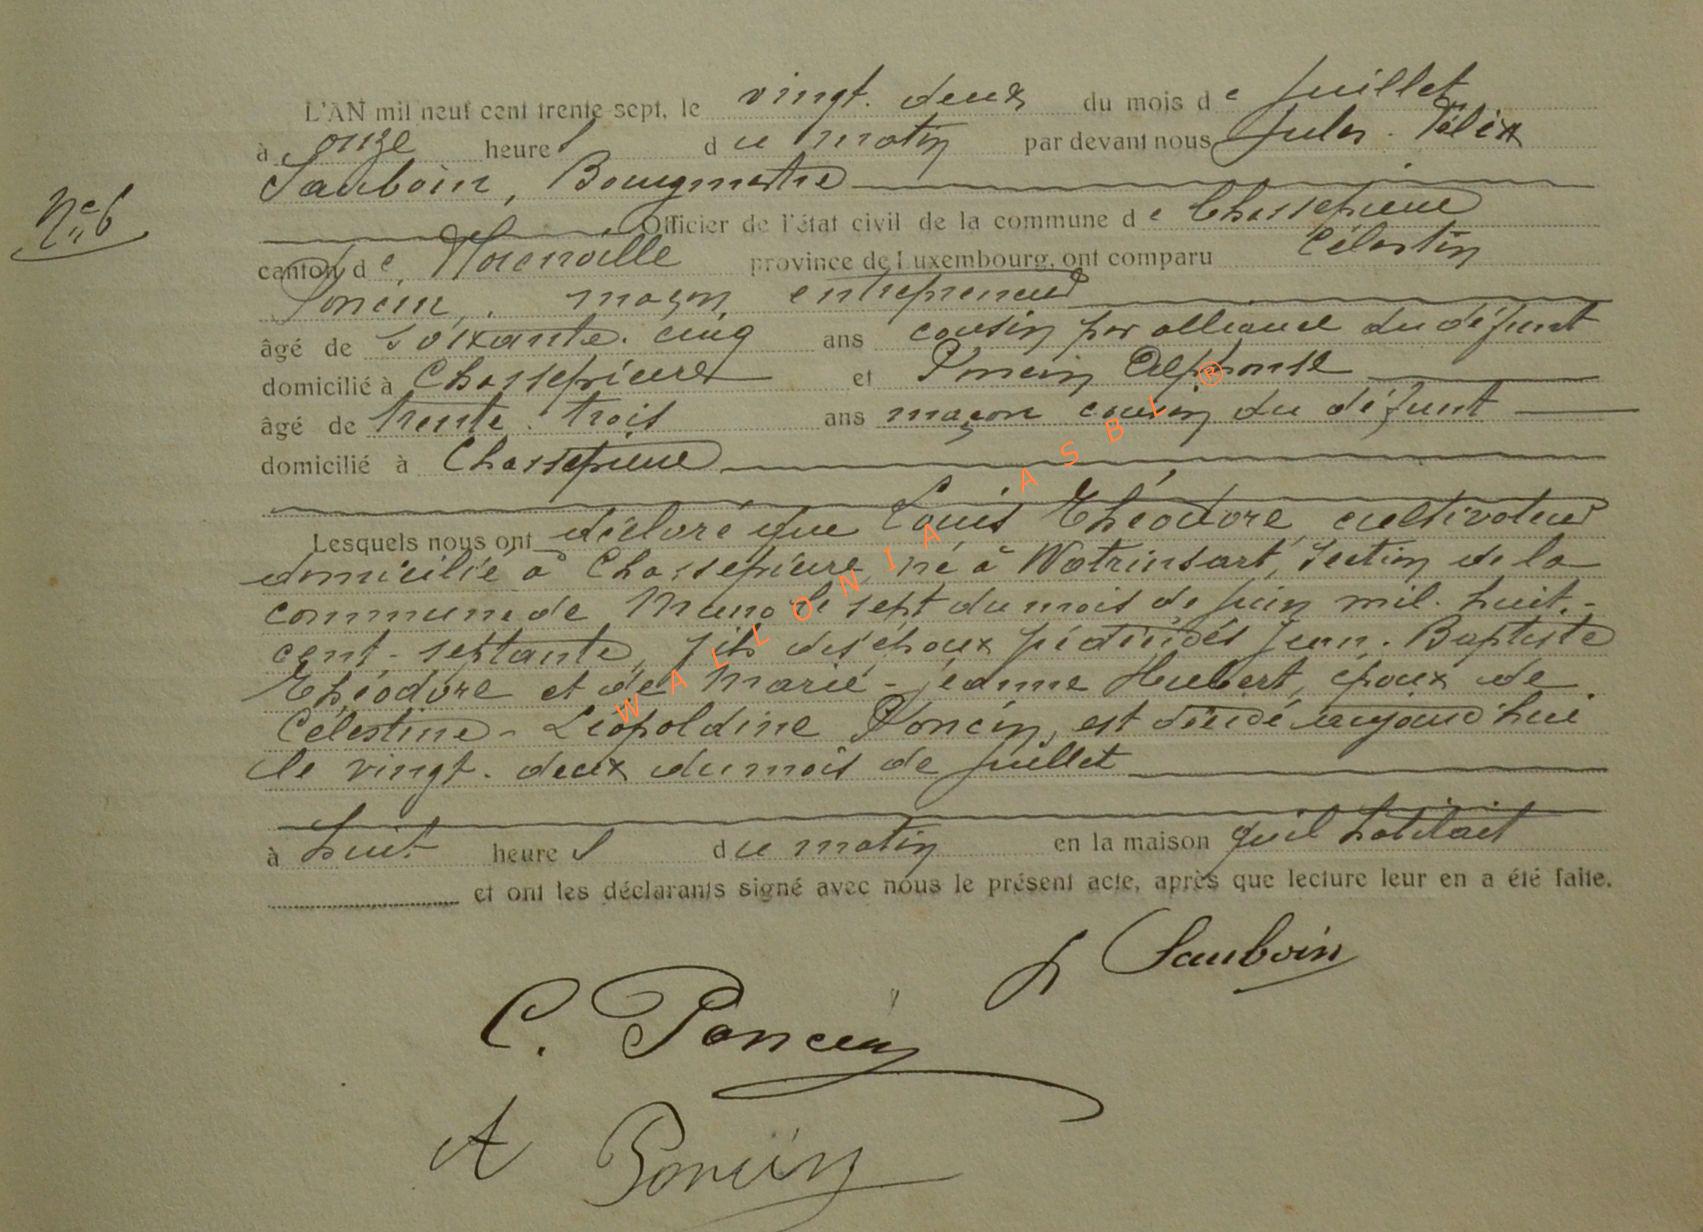 L'AN mil neuf cent trente-sept, le vingt-deux du mois de Juillet
à onze heures du matin par devant nous Jules-Félix
Sauboin, Bourgmestre
N° 6
Officier de l'état civil de la commune de Chassepierre
canton de Florenville province de Luxembourg, ont comparu Célestin
Poncin, maçon entrepreneur
âgé de soixante-cinq ans cousin par alliance du défunt
domicilié à Chassepierre et Poncin Alphonse
âgé de trente-trois ans maçon cousin du défunt
domicilié à Chassepierre
Lesquels nous ont déclaré que Louis Théodore, cultivateur
domicilié à Chassepierre, né à Watrinsart, section de la
commune de Muno le sept du mois de juin mil-huit-
cent-septante, fils des époux prédécédés Jean-Baptiste
Théodore et de Marie-jeanne Hubert, époux de
Célestine-Léopoldine Poncin, est décédé aujourd'hui
le vingt-deux du mois de juillet
à huit heures du matin en la maison qu'il habitait
et ont les déclarants signé avec nous le présent acte, après que lecture leur en a été faite.
Sauboin
C. Poncin
A Poncin
WALLONIA ASBL ®